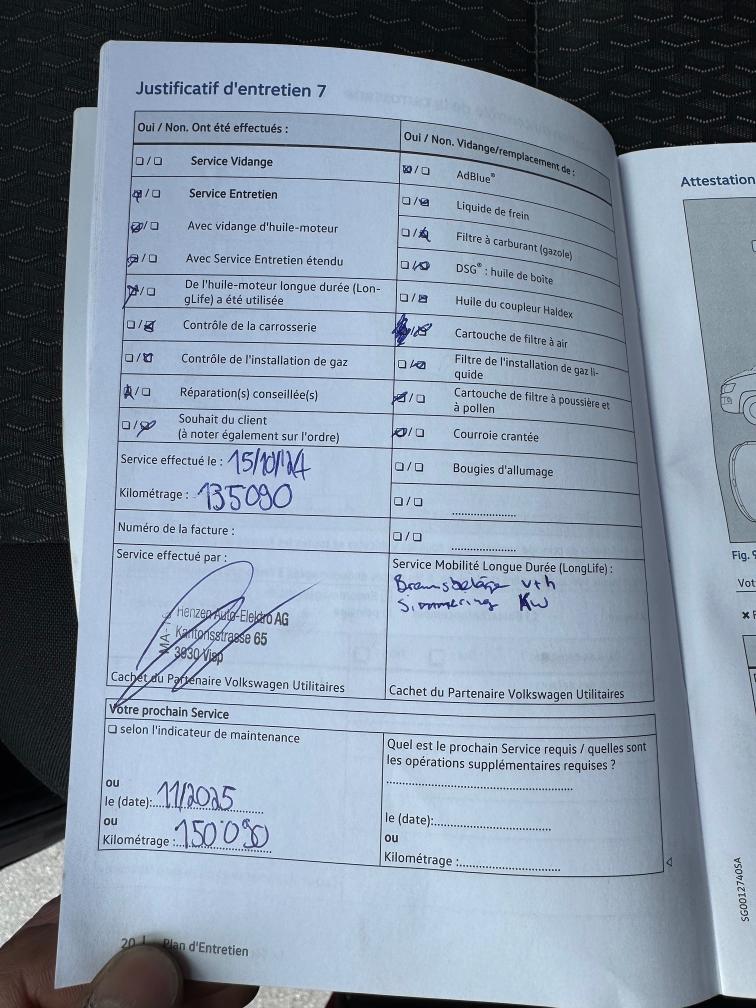 Justificatif d'entretien 7
Oui / Non. Ont été effectués :
☐ / ☐ Service Vidange
☒ / ☐ Service Entretien
☒ / ☐ Avec vidange d'huile-moteur
☒ / ☐ Avec Service Entretien étendu
☒ / ☐ De l'huile-moteur longue durée (Lon-
gLife) a été utilisée
☐ / ☒ Contrôle de la carrosserie
☐ / ☒ Contrôle de l'installation de gaz
☒ / ☐ Réparation(s) conseillée(s)
☐ / ☒ Souhait du client
(à noter également sur l'ordre)
Service effectué le : 15/10/24
Kilométrage : 135090
Numéro de la facture :
Service effectué par :
Henzen Auto-Elektro AG
Kantonsstrasse 65
3930 Visp
Cachet du Partenaire Volkswagen Utilitaires
Oui / Non. Vidange/remplacement de :
☒ / ☐ AdBlue®
☐ / ☒ Liquide de frein
☐ / ☒ Filtre à carburant (gazole)
☐ / ☒ DSG® : huile de boîte
☐ / ☒ Huile du coupleur Haldex
☒ / ☒ Cartouche de filtre à air
☐ / ☒ Filtre de l'installation de gaz li-
quide
☒ / ☐ Cartouche de filtre à poussière et
à pollen
☒ / ☐ Courroie crantée
☐ / ☐ Bougies d'allumage
☐ / ☐ ................
☐ / ☐ ................
Service Mobilité Longue Durée (LongLife) :
Bremsbeläge v+h
Simmering KW
Cachet du Partenaire Volkswagen Utilitaires
Votre prochain Service
☐ selon l'indicateur de maintenance
ou
le (date): 11/2025
ou
Kilométrage : 150'090
Quel est le prochain Service requis / quelles sont
les opérations supplémentaires requises ?
le (date):
ou
Kilométrage :
20 Plan d'Entretien
Attestation
Fig. 9
Vot
SG0012740SA